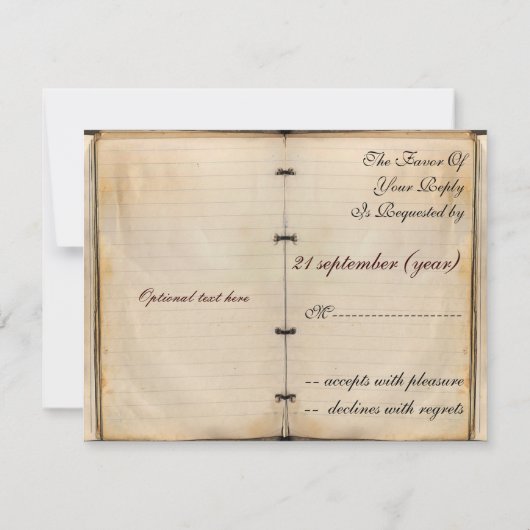 Optional text here
The Favor Of
Your Reply
Is Requested by
21 september (year)
M-------------------
-- accepts with pleasure
-- declines with regrets